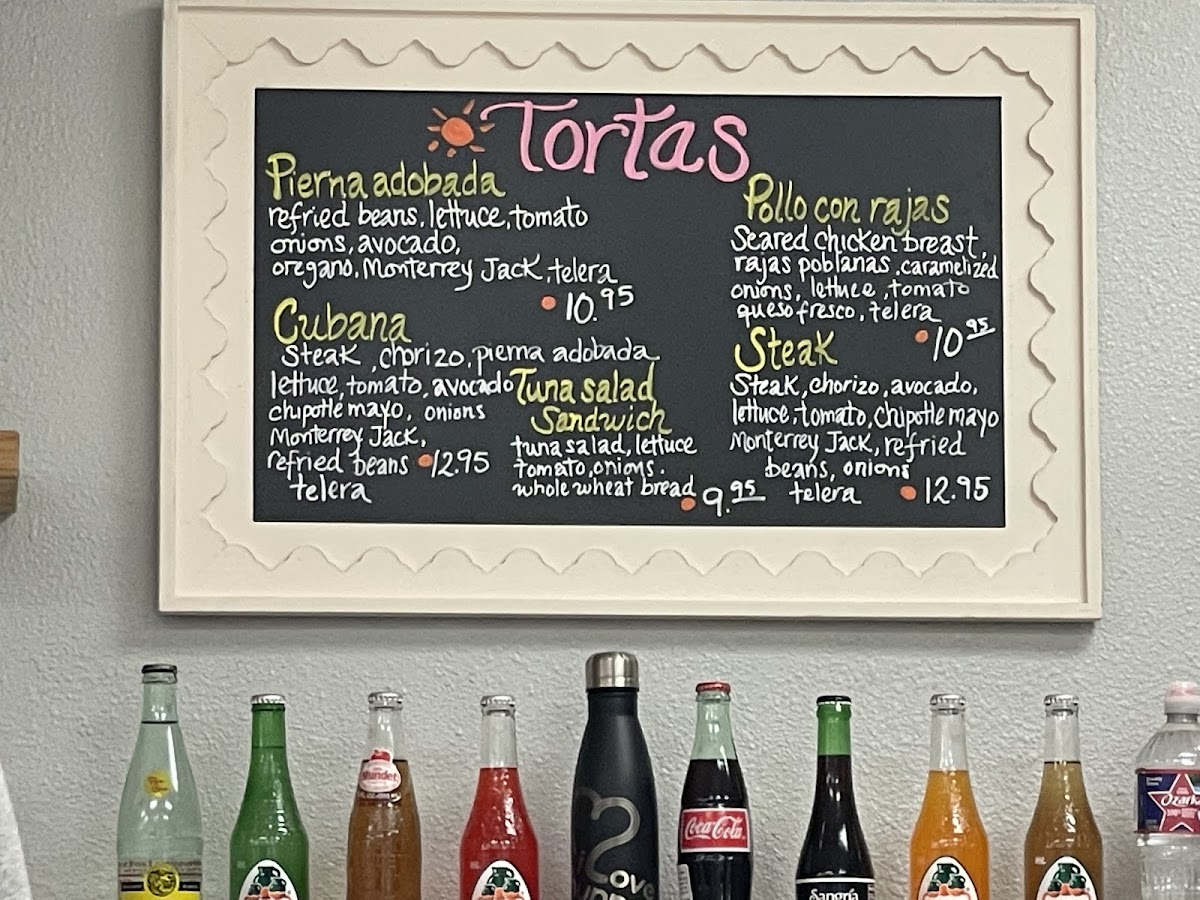 Tortas
Pierna adobada
refried beans, lettuce, tomato
onions, avocado,
oregano, Monterrey Jack, telera
10.95
Cubana
Steak, chorizo, pierna adobada
lettuce, tomato, avocado
chipotle mayo, onions
Monterrey Jack,
refried beans 12.95
telera
Tuna salad
Sandwich
tuna salad, lettuce
tomato, onions.
whole wheat bread
9.95
Pollo con rajas
Seared chicken breast,
rajas poblanas, caramelized
onions, lettuce, tomato
queso fresco, telera
10.95
Steak
Steak, chorizo, avocado,
lettuce, tomato, chipotle mayo
Monterrey Jack, refried
beans, onions
telera 12.95
Mundet
Coca-Cola
Sangria
Ozarka